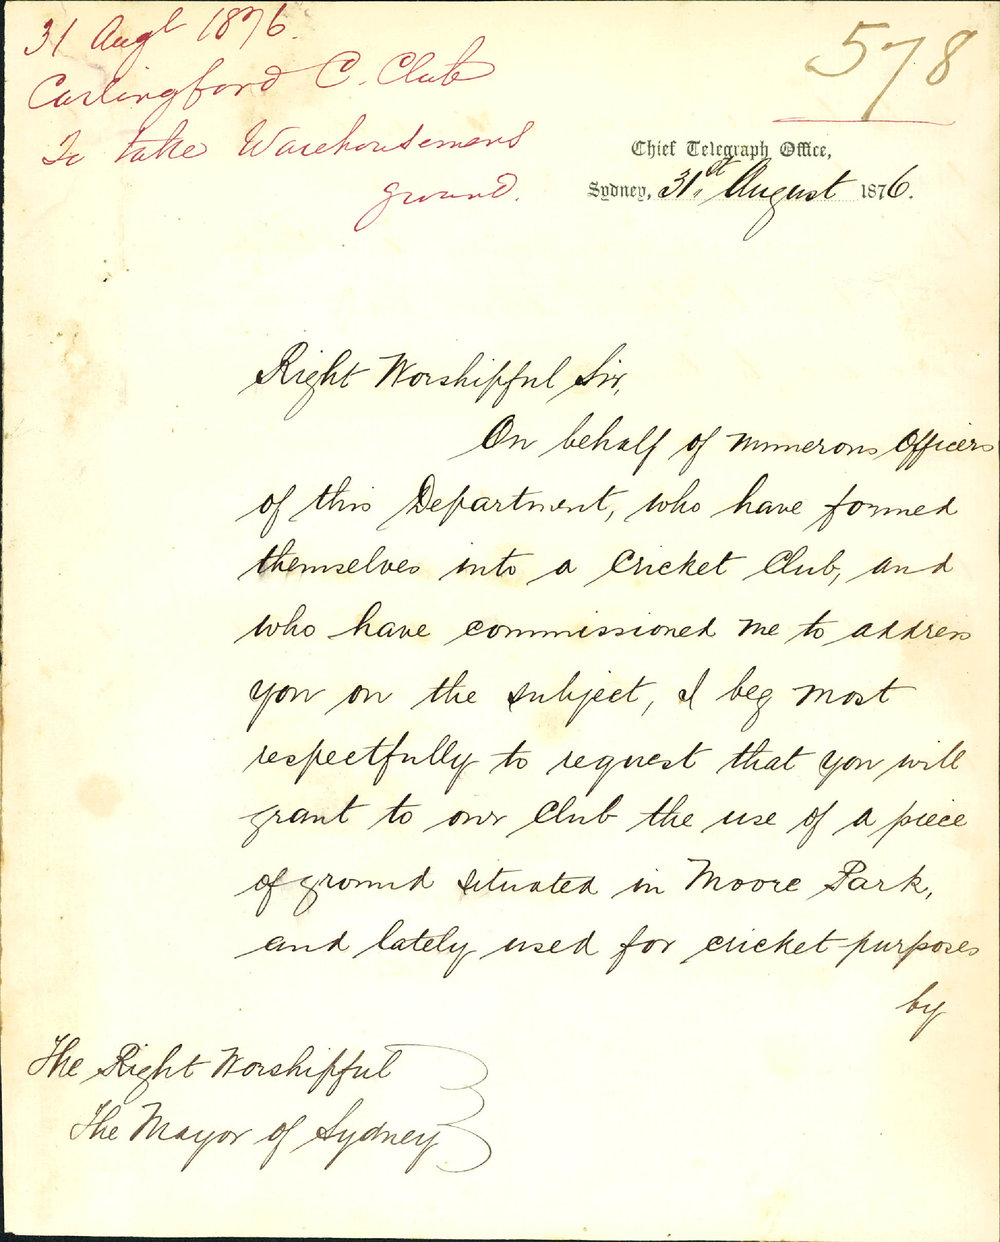 31 Augt 1876.
Carlingford C. Club
To take Warehousemens
ground.
578
Chief Telegraph Office,
Sydney, 31st August 1876.
Right Worshipful Sir,
On behalf of numerous Officers
of this Department, who have formed
themselves into a Cricket Club, and
who have commissioned me to address
you on the subject, I beg most
respectfully to request that you will
grant to our Club the use of a piece
of ground situated in Moore Park,
and lately used for cricket purposes
by
The Right Worshipful
The Mayor of Sydney